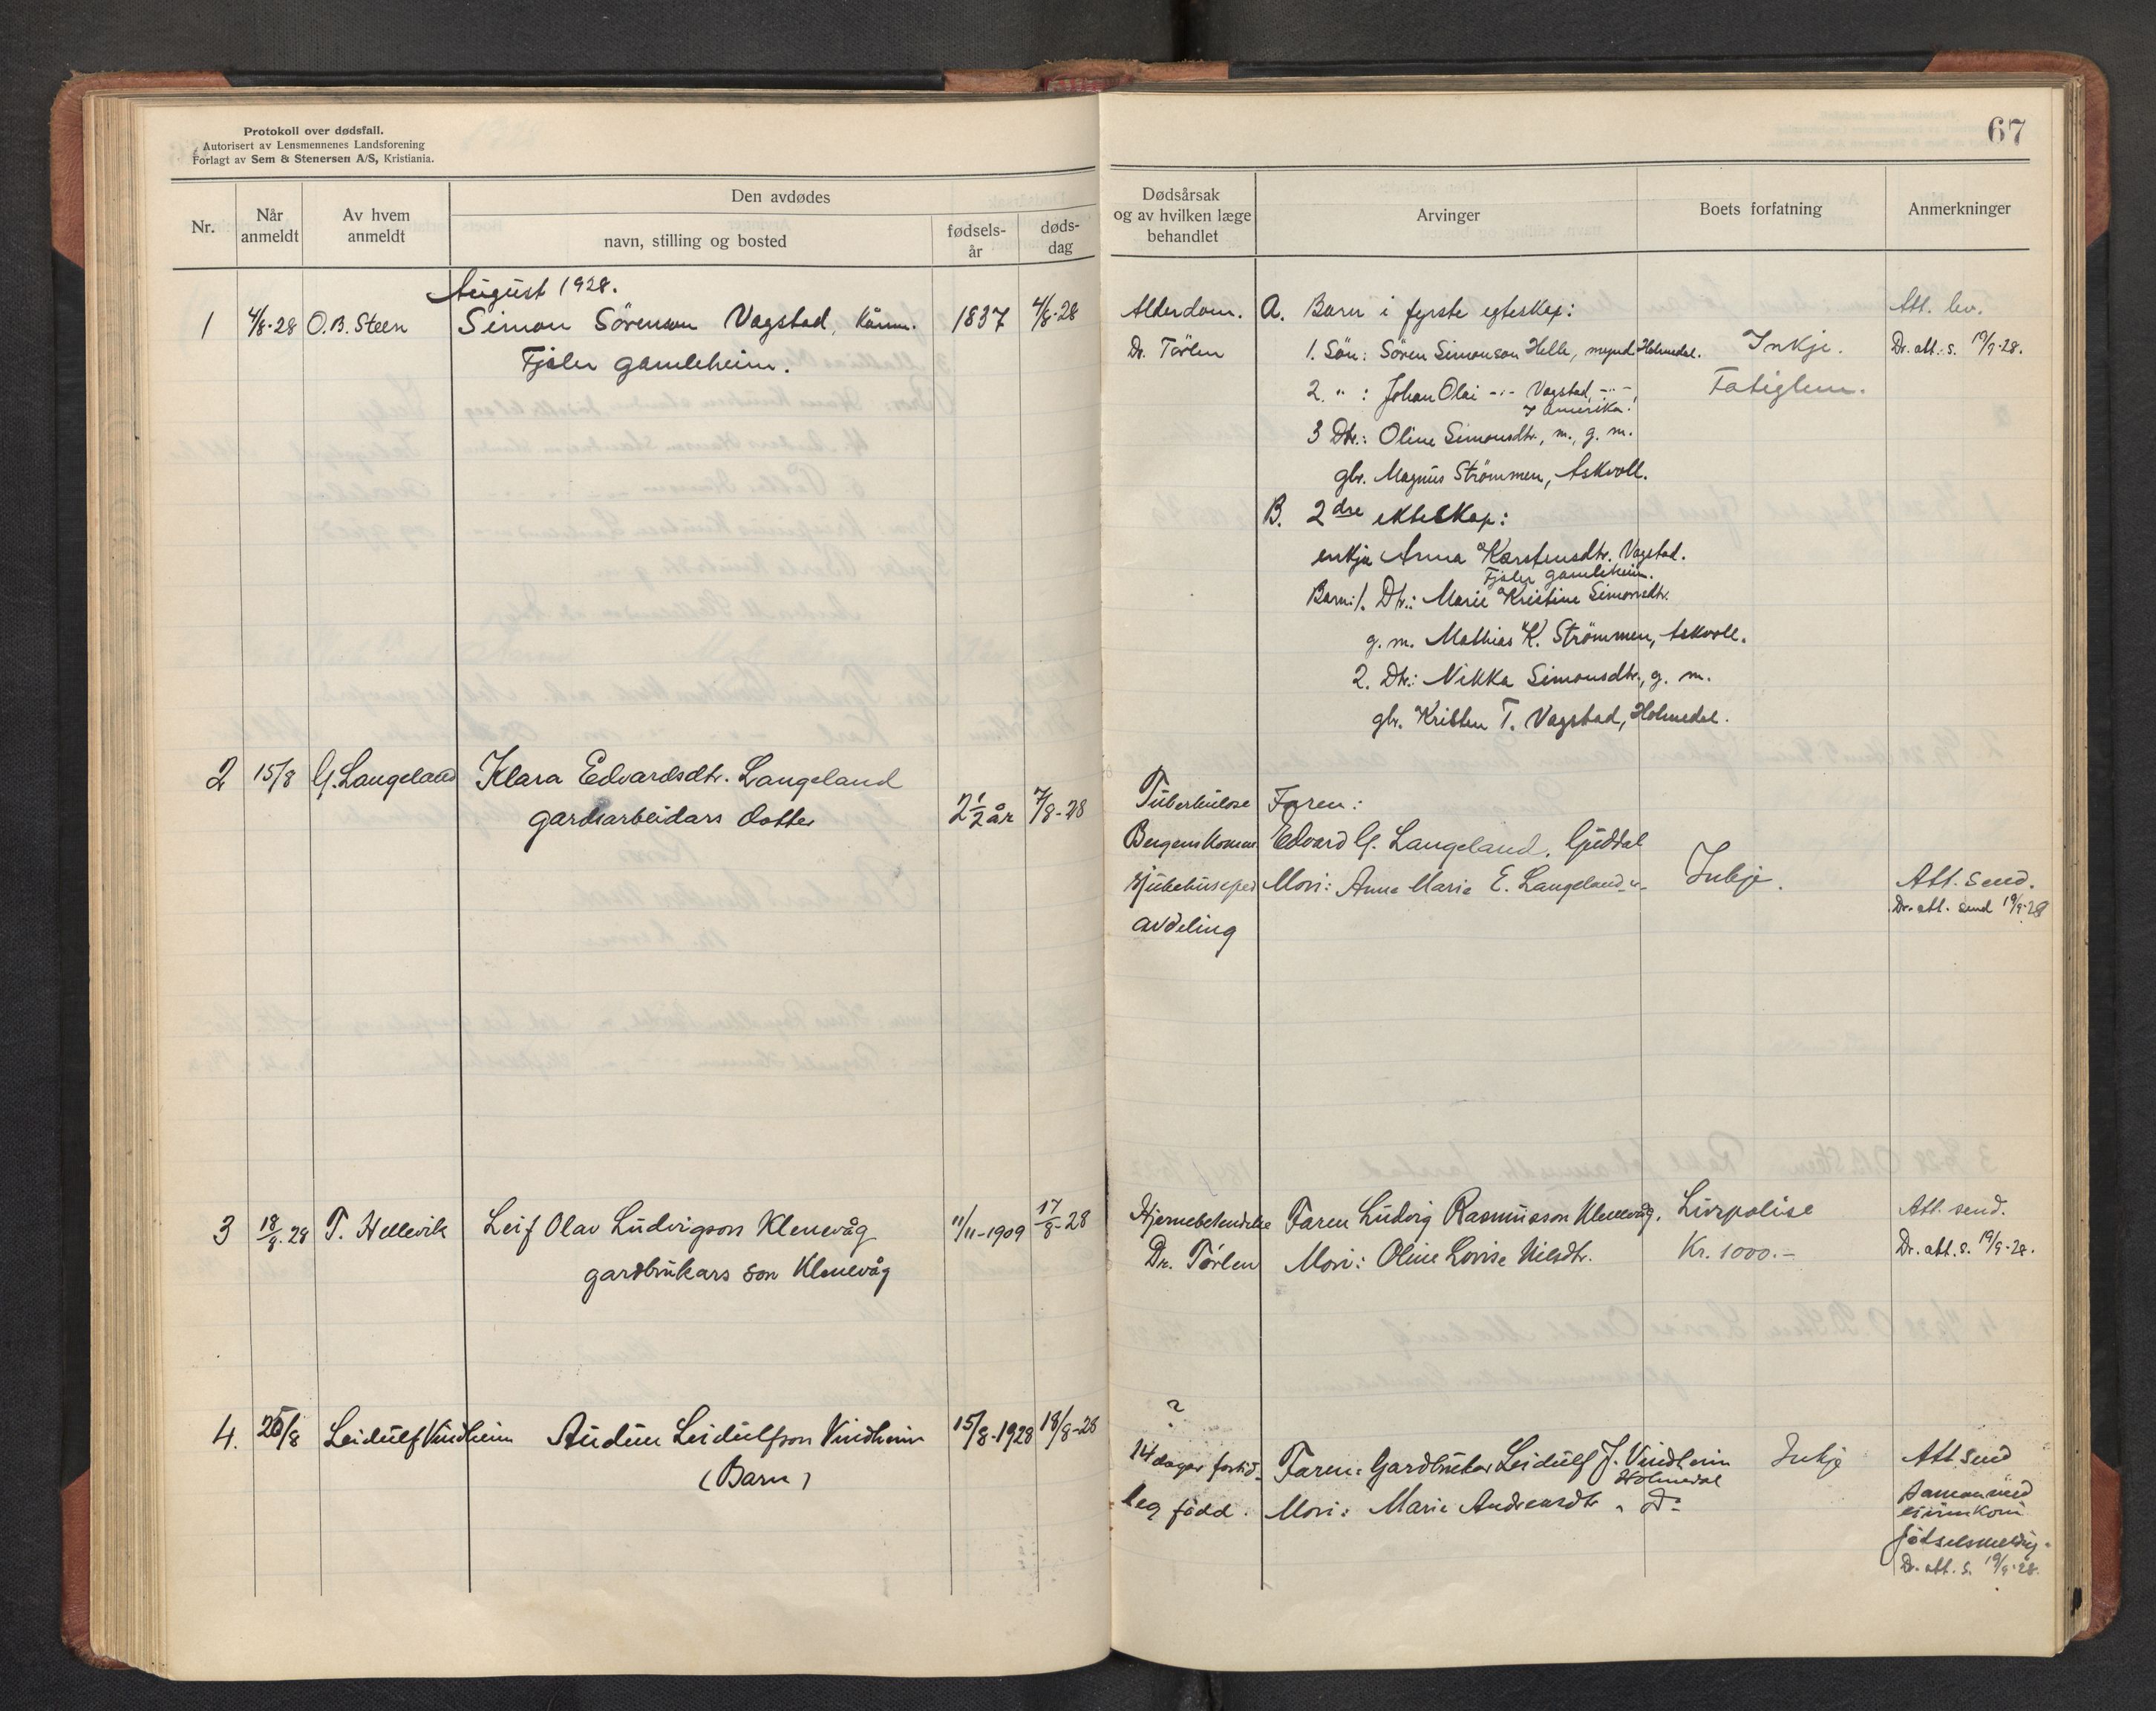 Protokoll over dødsfall.
Autorisert av Lensmennenes Landsforening
Forlagt av Sem & Stenersen A/S, Kristiania.
67
Nr.
Når anmeldt
Av hvem anmeldt
Den avdødes
navn, stilling og bosted
fødsels-år
døds-dag
Dødsårsak og av hvilken læge behandlet
Arvinger
Boets forfatning
Anmerkninger
August 1928.
1 4/8-28 O.B. Steen Simon Sörenson Vagstad, kårm. 1837 4/8-28
Fjaler gamleheim.
Alderdom.
Dr. Törlen
A. Barn i fyrste egteskap:
1. Sön: Sören Simonson Helle, mynd. Holmedal.
2. " : Johan Olai -"- Vagstad, -"-
i Amerika.
3 Dtr.: Oline Simonsdtr., m., g. m.
gbr. Magnus Strömmen, Askvoll.
B. 2dre ekteskap:
enkja Anna Karstensdtr. Vagstad.
Fjaler gamleheim.
Barn: 1. Dtr.: Marie Kristine Simonsdtr.
g. m. Mathias K. Strömmen, Askvoll.
2. Dtr.: Nikka Simonsdtr., g. m.
gbr. Kristen T. Vagstad, Holmedal.
Inkje.
Fatiglem.
Att. lev.
Dr. att. s. 19/9-28.
2 15/8 G. Langeland Klara Edvardsdtr. Langeland
gardsarbeidars dotter 2 1/2 år 7/8-28
Tuberkulose
Bergens Komm.
sjukehus
avdeling
Faren:
Edvard G. Langeland, Guddal
Mori: Anna Marie E. Langeland -"-
Inkje.
Att. send.
Dr. att. send 19/9-28
3 18/8.28 T. Hellevik Leif Olav Ludvigson Klenevåg 11/11-1909 17/8-28
gardbrukars son Klenevåg
Hjernebetendelse
Dr. Törlen
Faren Ludvig Rasmusson Klenevåg.
Mori: Oline Lovise Nilsdtr.
Livspolise
Kr. 1000.-
Att. send.
Dr. att. s. 19/9-28.
4. 25/8 Leidulf Vindheim Audun Leidulfson Vindheim 15/8-1928 18/8-28
(Barn)
?
14 dagar fortid-
leg född.
Faren: Gardbrukar Leidulf J. Vindheim
Holmedal
Mori: Marie Andreasdtr " Do
Inkje
Att send
saman med
födselsmelding.
Dr. att. s. 19/9-28.